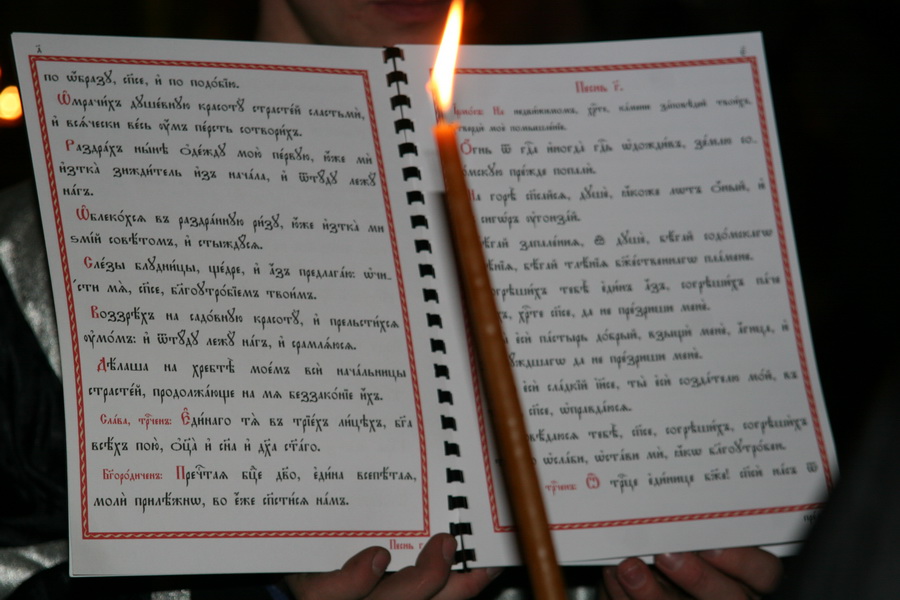 а҃
по ѡ҆́бразу, сп҃се, и҆ по подо́бїю.
Ѡ҆мрачи́хъ дꙋше́внꙋю красотꙋ̀ страсте́й сластьмѝ,
и҆ всѧ́чески ве́сь ᲂу҆́мъ пе́рсть сотвори́хъ.
Раздра́хъ ны́нѣ ѻ҆де́ждꙋ мою̀ пе́рвꙋю, ю҆́же мѝ
и҆зтка̀ зижди́тель и҆з̾ нача́ла, и҆ ѿтꙋ́дꙋ лежꙋ̀
на́гъ.
Ѡ҆блеко́хсѧ въ раздра́ннꙋю ри́зꙋ, ю҆́же и҆зтка̀ мѝ
ѕмі́й совѣ́томъ, и҆ стыждꙋ́сѧ.
Сле́зы блꙋдни́цы, ще́дре, и҆ а҆́зъ предлага́ю: ѡ҆чи́-
сти мѧ̀, сп҃се, бл҃гоꙋтро́бїемъ твои́мъ.
Воззрѣ́хъ на садо́внꙋю красотꙋ̀, и҆ прельсти́хсѧ
ᲂу҆мо́мъ: и҆ ѿтꙋ́дꙋ лежꙋ̀ на́гъ, и҆ срамлѧ́юсѧ.
Дѣ́лаша на хребтѣ̀ мое́мъ всѝ нача́льницы
страсте́й, продолжа́юще на мѧ̀ беззако́нїе и҆́хъ.
Сла́ва, трⷪ҇ченъ: Е҆ди́наго тѧ̀ въ трїе́хъ ли́цѣхъ, бг҃а
всѣ́хъ пою̀, ѻ҆ц҃а̀ и҆ сн҃а и҆ дх҃а ст҃а́го.
Бг҃оро́диченъ: Пречⷭ҇таѧ бц҃е дв҃о, є҆ди́на всепѣ́таѧ,
молѝ прилѣ́жнѡ, во є҆́же сп҃сти́сѧ на́мъ.
Пѣ́снь г҃.
Пѣ́снь г҃.
На недви́жимомъ, хрⷭ҇тѐ, ка́мени за́повѣдїй твои́хъ,
моѐ помышле́нїе.
Ѻ҆́гнь ѿ гдⷭ҇а и҆ногда̀ гдⷭ҇ь ѡ҆дожди́въ, зе́млю
пре́жде попалѝ.
горѣ̀ спаса́йсѧ, дꙋшѐ, ꙗ҆́коже лѡ́тъ ѻ҆́ный, и҆
сигѡ́ръ ᲂу҆гонза́й.
запале́нїѧ, ѽ дꙋшѐ, бѣ́гай содо́мскагѡ
бѣ́гай тлѣ́нїѧ бж҃е́ственнагѡ пла́мене.
тебѣ̀ є҆ди́нъ а҆́зъ, согрѣши́хъ па́че
хрⷭ҇тѐ сп҃се, да не пре́зриши менѐ.
є҆сѝ па́стырь до́брый, взыщѝ менѐ, а҆́гнца, и҆
да не пре́зриши менѐ.
є҆сѝ сла́дкїй і҆и҃се, ты̀ є҆сѝ созда́телю мо́й, въ
сп҃се, ѡ҆правда́юсѧ.
тебѣ̀, сп҃се, согрѣши́хъ, согрѣши́хъ
ѡ҆сла́би, ѡ҆ста́ви мѝ, ꙗ҆́кѡ бл҃гоꙋтро́бенъ.
трⷪ҇ченъ: Ѽ трⷪ҇це є҆ди́нице бж҃е! сп҃сѝ на́съ ѿ